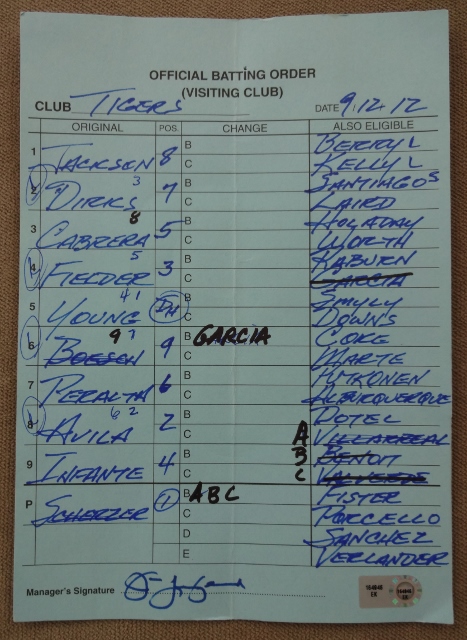 OFFICIAL BATTING ORDER
(VISITING CLUB)
CLUB TIGERS DATE 9/12/12
ORIGINAL POS. CHANGE ALSO ELIGIBLE
1 JACKSON 8 B BERRY L
C KELLY L
2 DIRKS 3 7 B SANTIAGO S
C LAIRD
3 CABRERA 8 5 B HOLADAY
C WORTH
4 FIELDER 5 3 B RABURN
C GARCIA
5 YOUNG 4 1 DH B SMYLY
C DOWNS
6 BOESCH 9 7 9 B GARCIA COKE
C MARTE
7 PERALTA 6 B PUTKONEN
C ALBUQUERQUE
8 AVILA 6 2 2 B DOTEL
C A VILLARREAL
9 INFANTE 4 B B BENOIT
C C VALVERDE
P SCHERZER 1 B ABC FISTER
C PORCELLO
D SANCHEZ
E VERLANDER
Manager's Signature
164848
EK
164848
EK